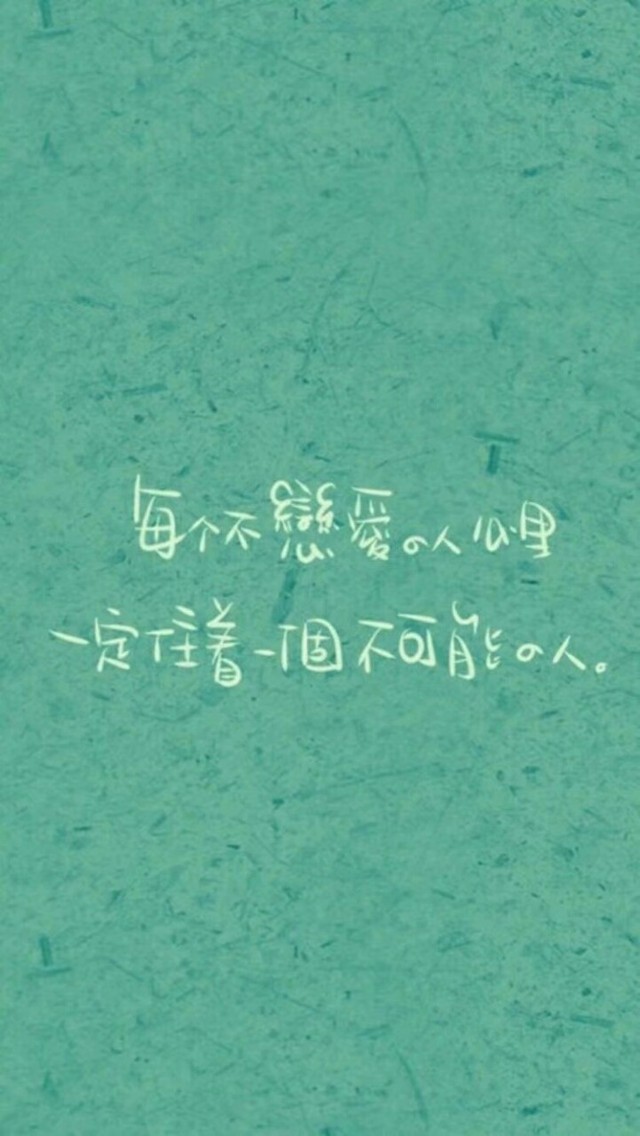 每个不戀愛の人心里
一定住着一個不可能の人。